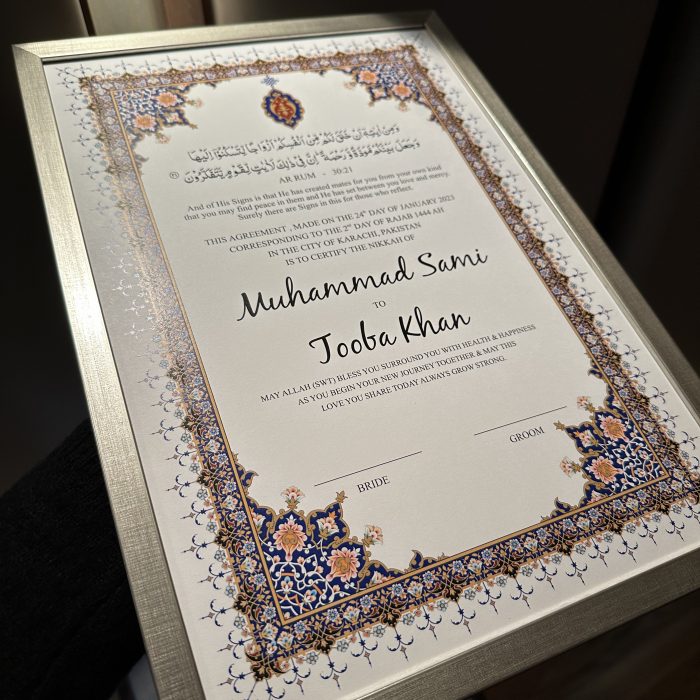 وَمِنْ آيَاتِهِ أَنْ خَلَقَ لَكُم مِّنْ أَنفُسِكُمْ أَزْوَاجًا لِّتَسْكُنُوا إِلَيْهَا
وَجَعَلَ بَيْنَكُم مَّوَدَّةً وَرَحْمَةً إِنَّ فِي ذَٰلِكَ لَآيَاتٍ لِّقَوْمٍ يَتَفَكَّرُونَ
AR RUM - 30:21
And of His Signs is that He has created mates for you from your own kind
that you may find peace in them and He has set between you love and mercy.
Surely there are Signs in this for those who reflect.
THIS AGREEMENT , MADE ON THE 24th DAY OF JANUARY 2023
CORRESPONDING TO THE 2nd DAY OF RAJAB 1444 AH
IN THE CITY OF KARACHI, PAKISTAN
IS TO CERTIFY THE NIKKAH OF
Muhammad Sami
TO
Tooba Khan
MAY ALLAH (SWT) BLESS YOU SURROUND YOU WITH HEALTH & HAPPINESS
AS YOU BEGIN YOUR NEW JOURNEY TOGETHER & MAY THIS
LOVE YOU SHARE TODAY ALWAYS GROW STRONG.
BRIDE
GROOM